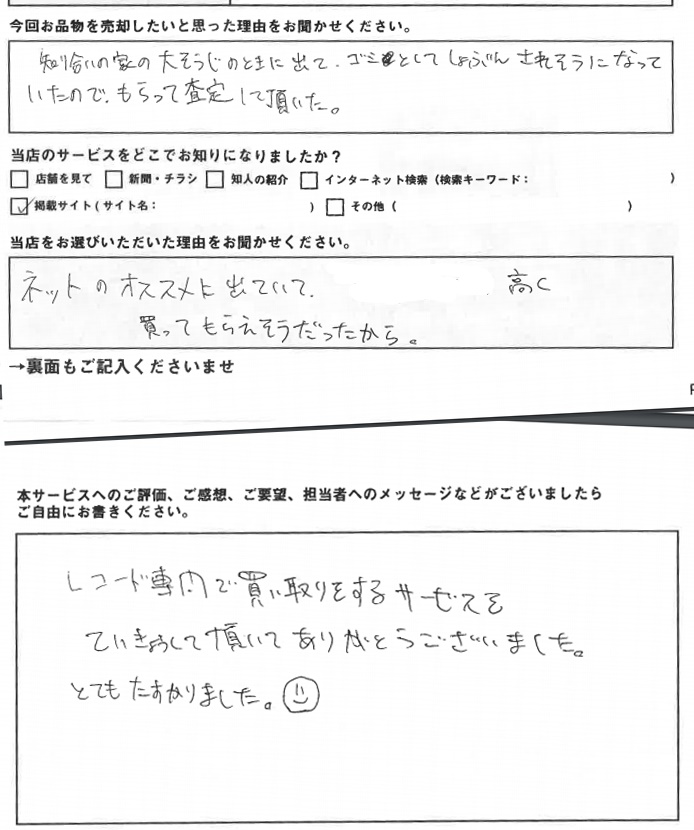 今回お品物を売却したいと思った理由をお聞かせください。
知り合いの家の大そうじのときに出て、ゴミとしてしょぶんされそうになって
いたので、もらって査定して頂いた。
当店のサービスをどこでお知りになりましたか?
店舗を見て 新聞・チラシ 知人の紹介 インターネット検索(検索キーワード: )
掲載サイト(サイト名: ) その他( )
当店をお選びいただいた理由をお聞かせください。
ネットのオススメに出ていて、 高く
買ってもらえそうだったから。
→裏面もご記入くださいませ
本サービスへのご評価、ご感想、ご要望、担当者へのメッセージなどがございましたら
ご自由にお書きください。
レコード専門で買い取りをするサービスを
ていきょうして頂いてありがとうございました。
とてもたすかりました。